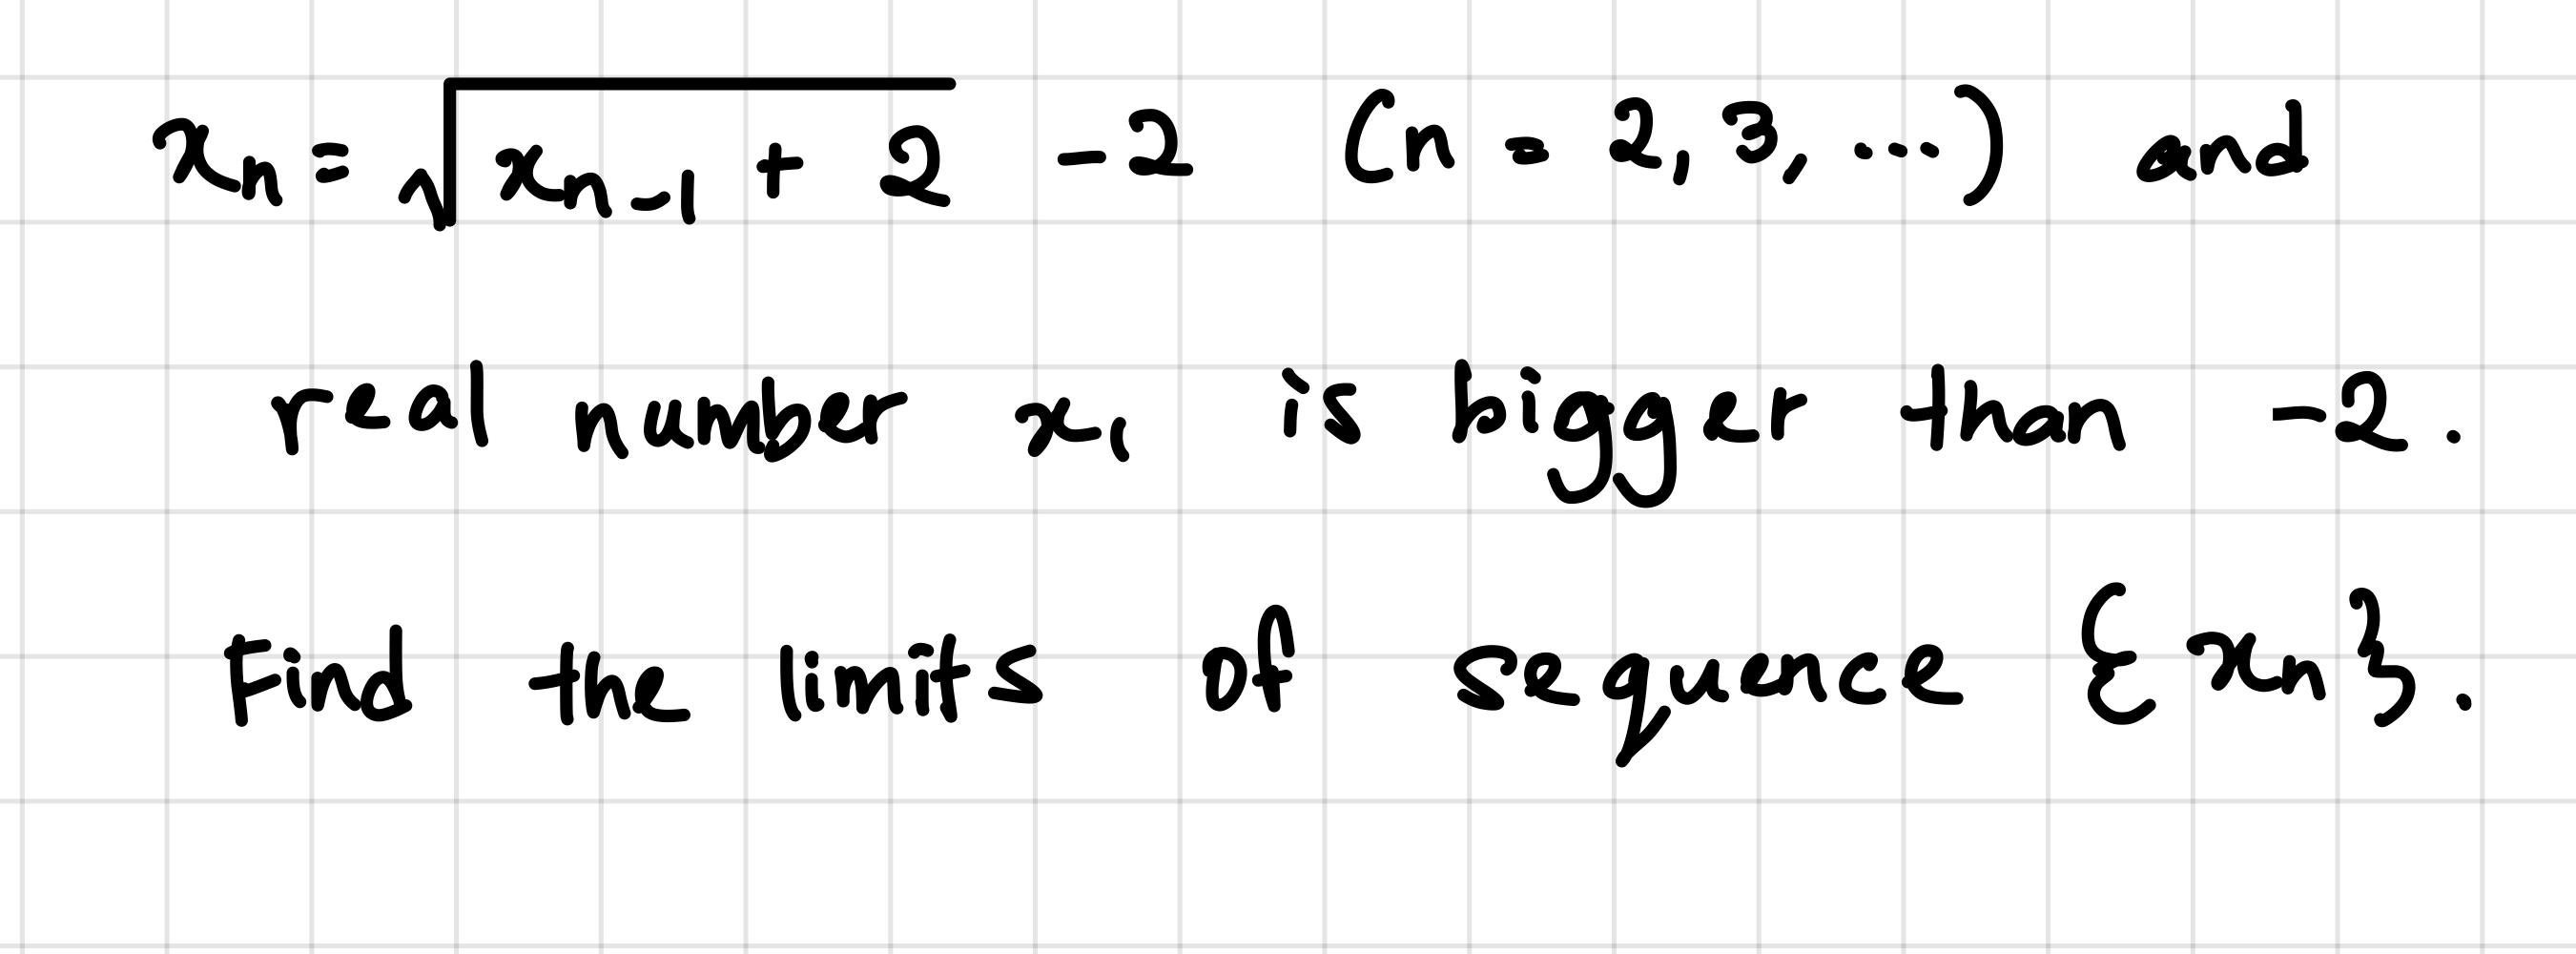 xₙ = √(xₙ₋₁ + 2) - 2 (n = 2, 3, ...) and
real number x₁ is bigger than -2.
Find the limits of sequence {xₙ}.